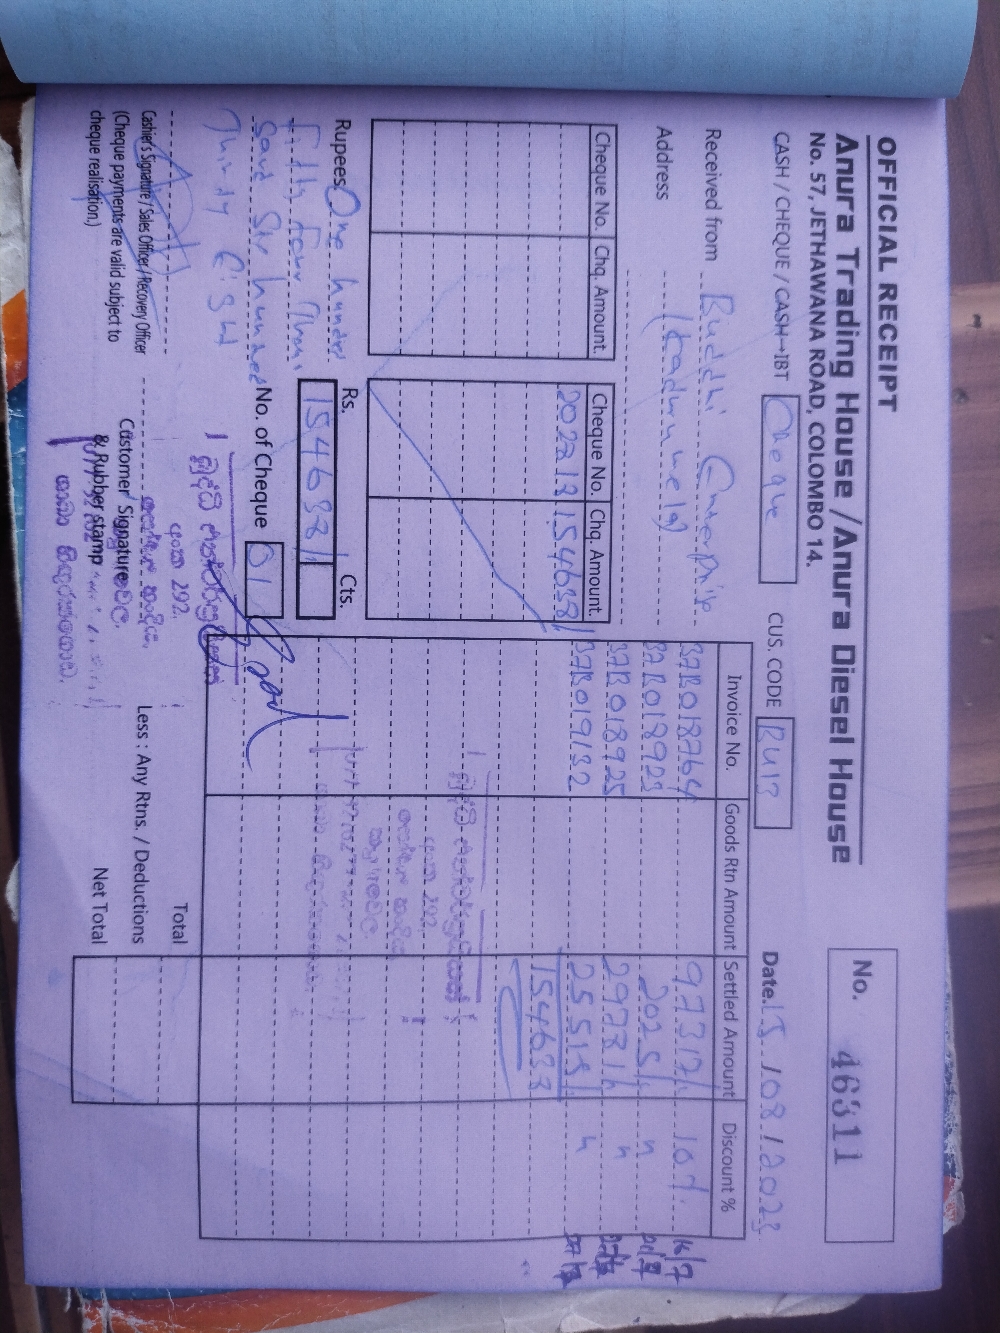 OFFICIAL RECEIPT
Anura Trading House / Anura Diesel House
No. 57, JETHAWANA ROAD, COLOMBO 14.
No. 46311
CASH / CHEQUE / CASH→IBT Cheque CUS. CODE RU13 Date. 15/08/2023
Received from Buddhi Enterprise
Address (Kaduwwela)
Cheque No. Chq. Amount. Cheque No. Chq. Amount.
202218 154638/
Invoice No. Goods Rtn Amount Settled Amount Discount %
BAR018764 97317/ 10d. 16/7
BAR018923 2025/ "
BAR018925 29781/ "
BAR019132 25515/ "
154638
Rupees One hundred
Fifty four Thou
sand Six hundred
Thirdy Eight
Rs. Cts.
154638/
No. of Cheque 01
බුද්ධි එන්ටප්‍රයිසස්
අංක 292.
Cashier's Signature / Sales Officer / Recovery Officer
(Cheque payments are valid subject to
cheque realisation.)
Customer Signature
& Rubber stamp
Total
Less : Any Rtns. / Deductions
Net Total